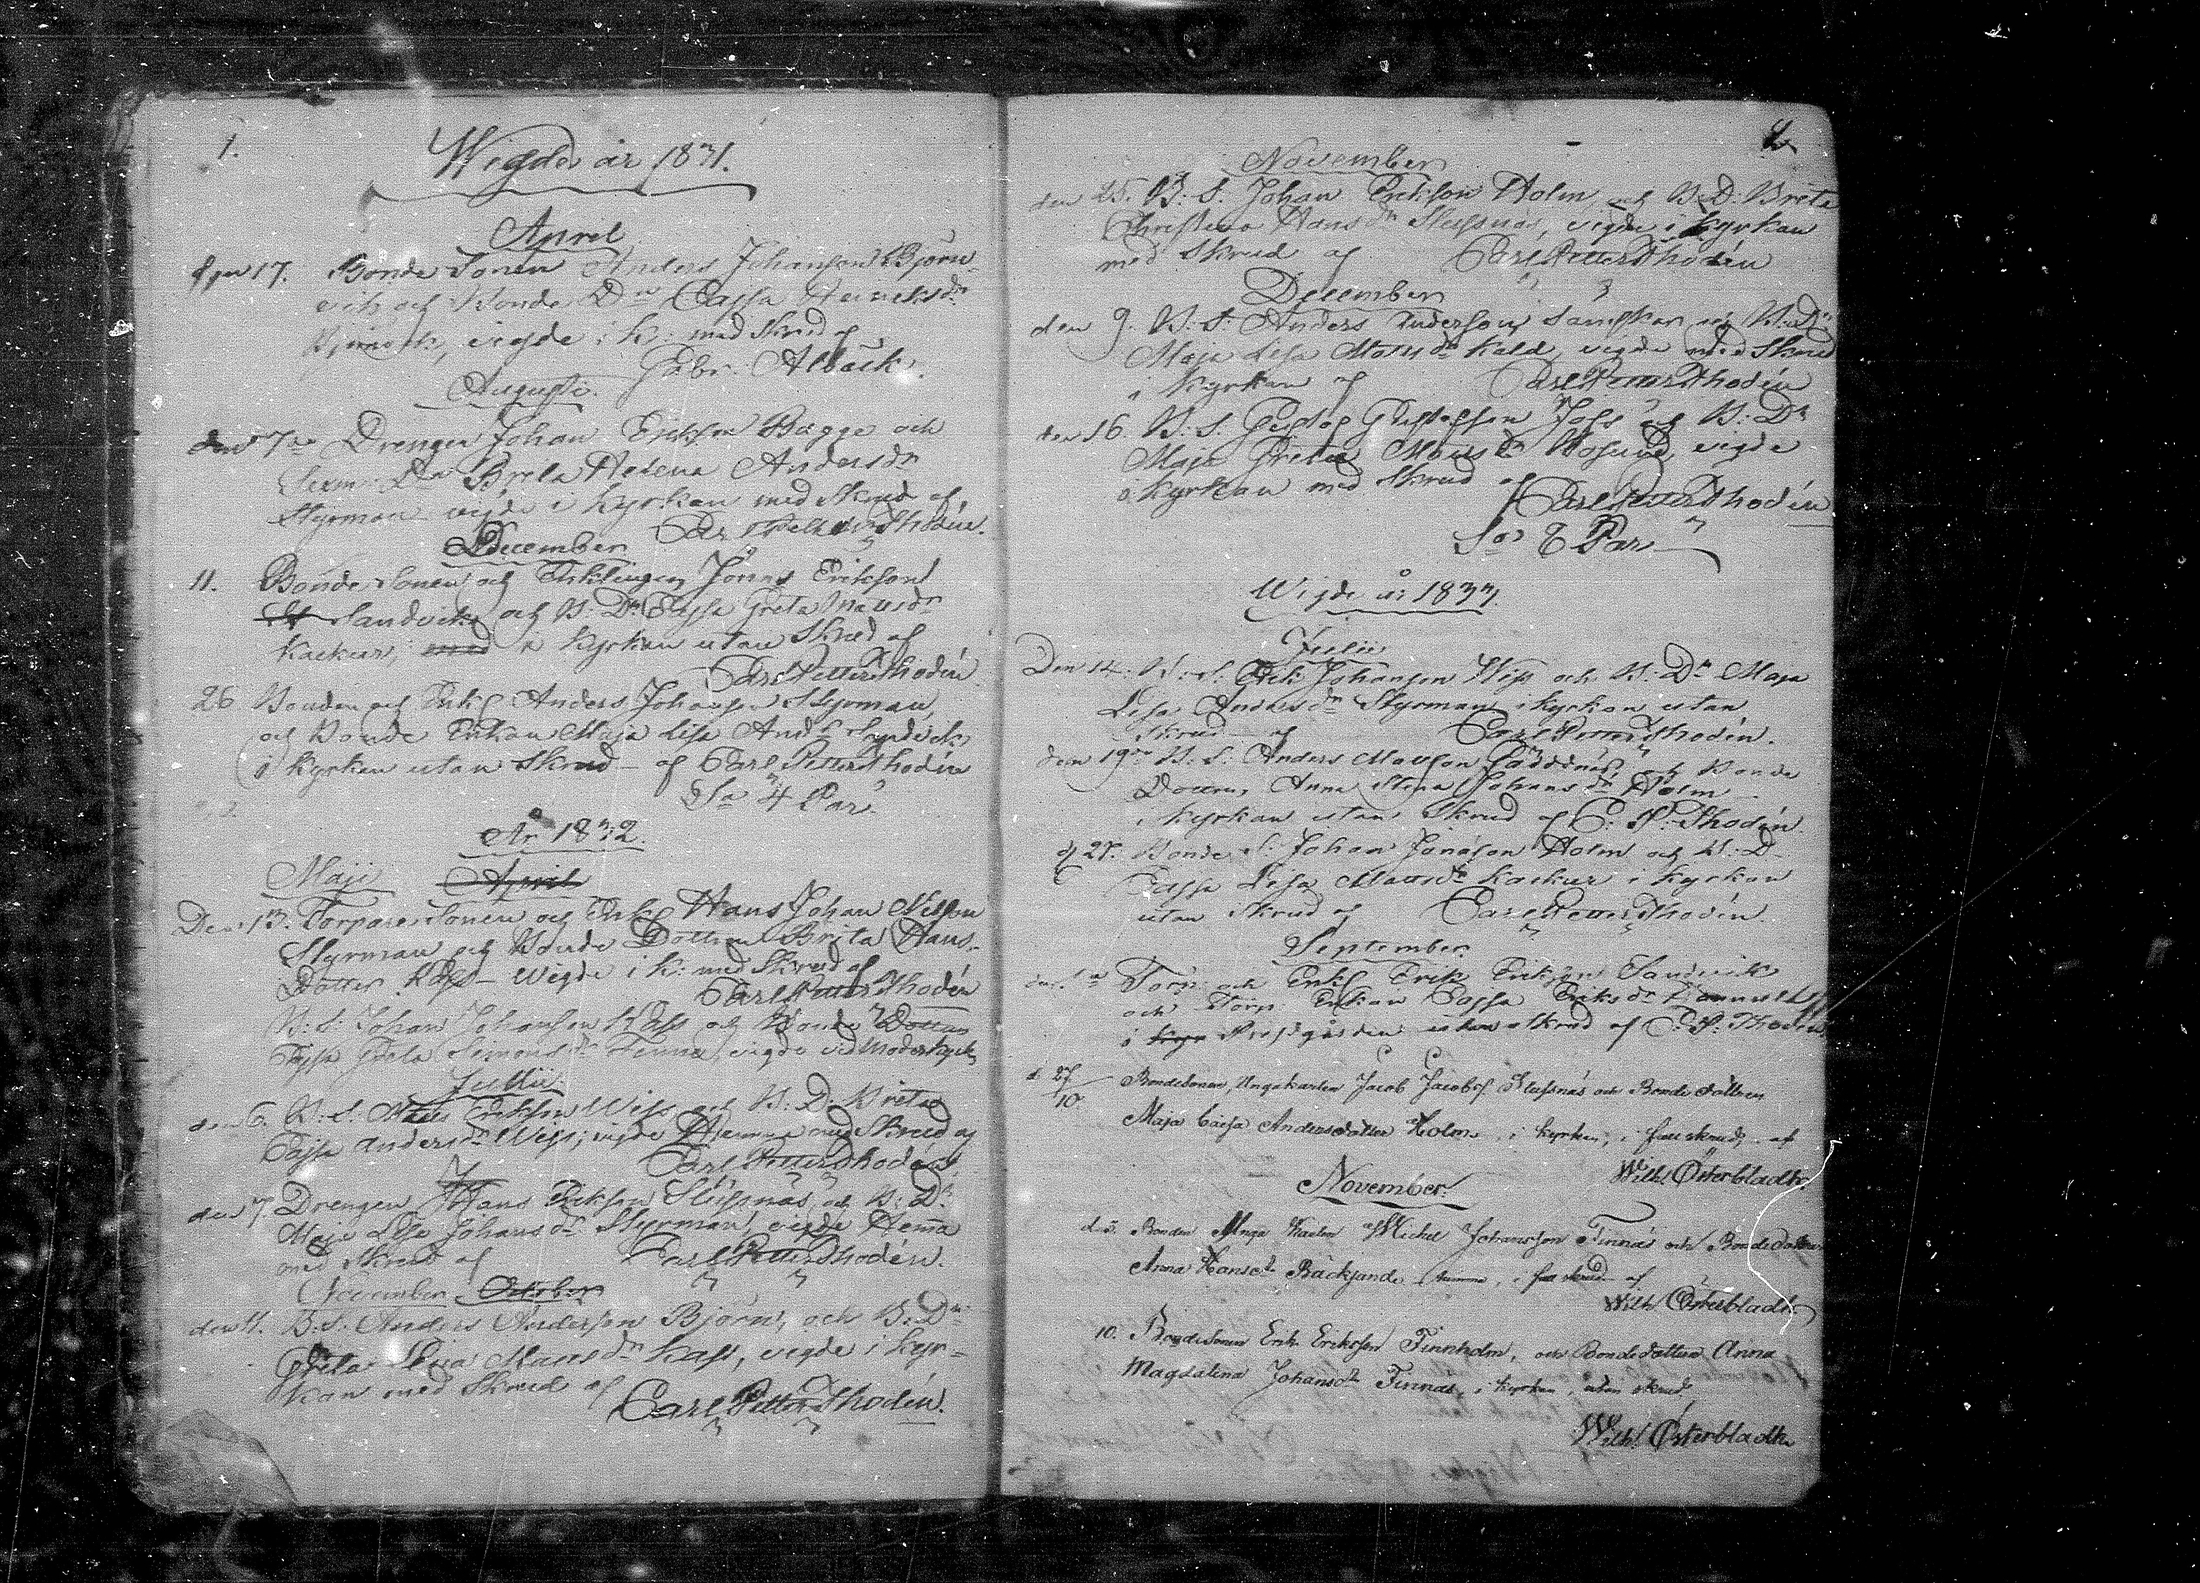 1.
Wigde år 1831.
April
den 17. Bonde Sonen Anders Johansson Björn-
vik och Bonde Dn Cajsa Henriksdr
Björnvik, vigde i K: med Skrud af
Gabr. Albäck.
Augusti.
den 7de Drengen Johan Erikson Bagge och
Dn Breta Helena Andersdr
Styrman vigde i Kyrkan med Skrud af
Carl Petter Thodén.
December
11. Bonde Sonen och Enklingen Jonas Erikson
Sandvik och B: Dn Cajsa Greta Mansdr
Kackur, i Kyrkan utan Skrud af
Carl Petter Thodén
26 Bonden och Enkl Anders Johanson Styrman,
och Bonde Enkan Maja Lisa Andsdr Sandvik
i Kyrkan utan Skrud af Carl Petter Thodén
Sa 4 Par
År 1832.
Maji April
Den 13. Torpare Sonen och Enkl Hans Johan Nilsson
Styrman och Bonde Dottren Brita Hans-
Dotter Käss - Wigde i K: med Skrud af
Carl Petter Thodén
B: S: Johan Johanson Käss och Bonde Dottren
Cajsa Greta Simonsdr Finnä, vigde vid Moderkyrk
Julii
den 6. B: S: Mats Erikson Wiss och B: D: Brita
Cajsa Andersdr Wiss, vigde Hemma med Skrud af
Carl Petter Thodén
den 7 Drengen Hans Erikson Slussnäs och B: Dr
Maja Lisa Johansdr Styrman, vigde Hema
med Skrud af Carl Petter Thodén.
November October
den 11. B: S: Anders Anderson Björn, och B: Dr
Greta Mansdr Kass, vigde i Kyr-
kan med Skrud af
Carl Petter Thodén.
2
November
den 25. B: S. Johan Erikson Holm och B: D: Breta
Christina Hansdr Slussnäs, vigde i Kyrkan
med Skrud af Carl Petter Thodén
December
den 9. B: S: Anders Anderson och B: Dr
Maja Lisa Matsdr Kald, vigde med Skrud
i Kyrkan af Carl Petter Thodén
den 16 B: S. Gustaf Gustafsson och B: Dr
Maja Greta Mansdr vigde
i Kyrkan med Skrud af Carl Petter Thodén
Sa 8 Par
Wigde år 1833.
Julii
Den 14. B: S. Erik Johanson Wiss och B: Dr Maja
Lisa Andersdr Styrman i Kyrkan utan
Skrud af Carl Petter Thodén.
den 19de B: S: Anders Manson Gäddnäs, och Bonde
Dottren Anna Stina Johansdr Holm
i Kyrkan utan Skrud af C: P: Thodén.
d 27. Bonde S: Johan Jonasson Holm och B: D
Cajsa Lisa Mansdr Kackur i Kyrkan
utan Skrud af Carl Petter Thodén.
September.
den 1a Torp: och Enkl Erik Erikson Sandvik
och Torp: Enkan Cajsa Eriksdr
i Kyr Prestgården utan skrud af C: P: Thodén
d 27/10 Bondesonen, Ungakarlen Jacob Jacobsf Slussnäs och Bonde dottren
Maja Caisa Andersdotter Holm, i kyrkan, i full skrud, af
Wilh. Österbladh.
November.
d. 3. Bonden Unga Karlen Michel Johansson Finnäs och Bondedottren
Anna Hansdr Backjande hemma, i full skrud af
Wilh. Österbladh.
10. Bondesonen Erik Eriksson Finnholm, och Bondedottren Anna
Magdalena Johansdr Finnäs, i kyrkan, utan skrud
Wilh. Österbladh